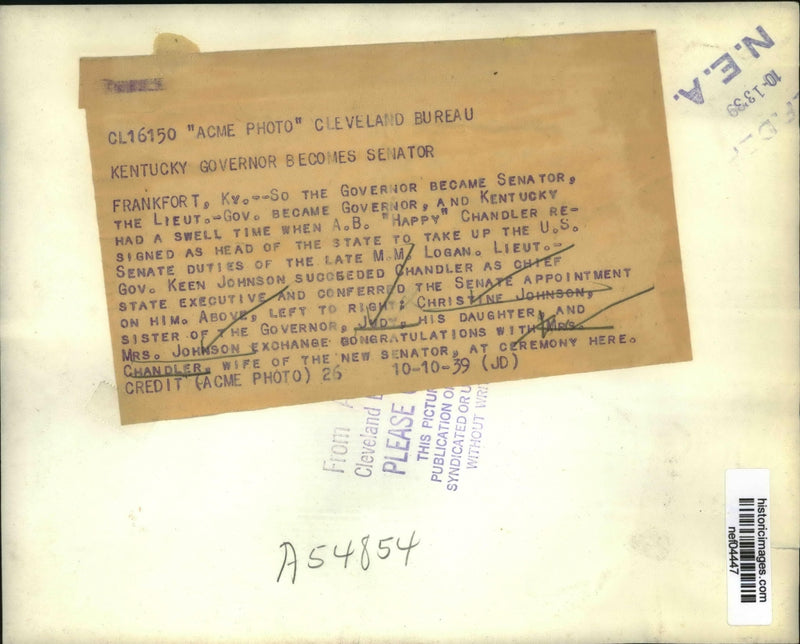 N.E.A.
10-13'39
CL16150 "ACME PHOTO" CLEVELAND BUREAU
KENTUCKY GOVERNOR BECOMES SENATOR
FRANKFORT, KY.--SO THE GOVERNOR BECAME SENATOR,
THE LIEUT.-GOV. BECAME GOVERNOR, AND KENTUCKY
HAD A SWELL TIME WHEN A.B. "HAPPY" CHANDLER RE-
SIGNED AS HEAD OF THE STATE TO TAKE UP THE U.S.
SENATE DUTIES OF THE LATE M.M. LOGAN. LIEUT.-
GOV. KEEN JOHNSON SUCCEEDED CHANDLER AS CHIEF
STATE EXECUTIVE AND CONFERRED THE SENATE APPOINTMENT
ON HIM. ABOVE, LEFT TO RIGHT: CHRISTINE JOHNSON,
SISTER OF THE GOVERNOR, JUDY, HIS DAUGHTER, AND
MRS. JOHNSON EXCHANGE CONGRATULATIONS WITH MRS.
CHANDLER, WIFE OF THE NEW SENATOR, AT CEREMONY HERE.
CREDIT (ACME PHOTO) 26 10-10-39 (JD)
From
Cleveland
PLEASE
THIS PICTU
PUBLICATION O
SYNDICATED OR U
WITHOUT WRI
A54854
historicimages.com
nef04447